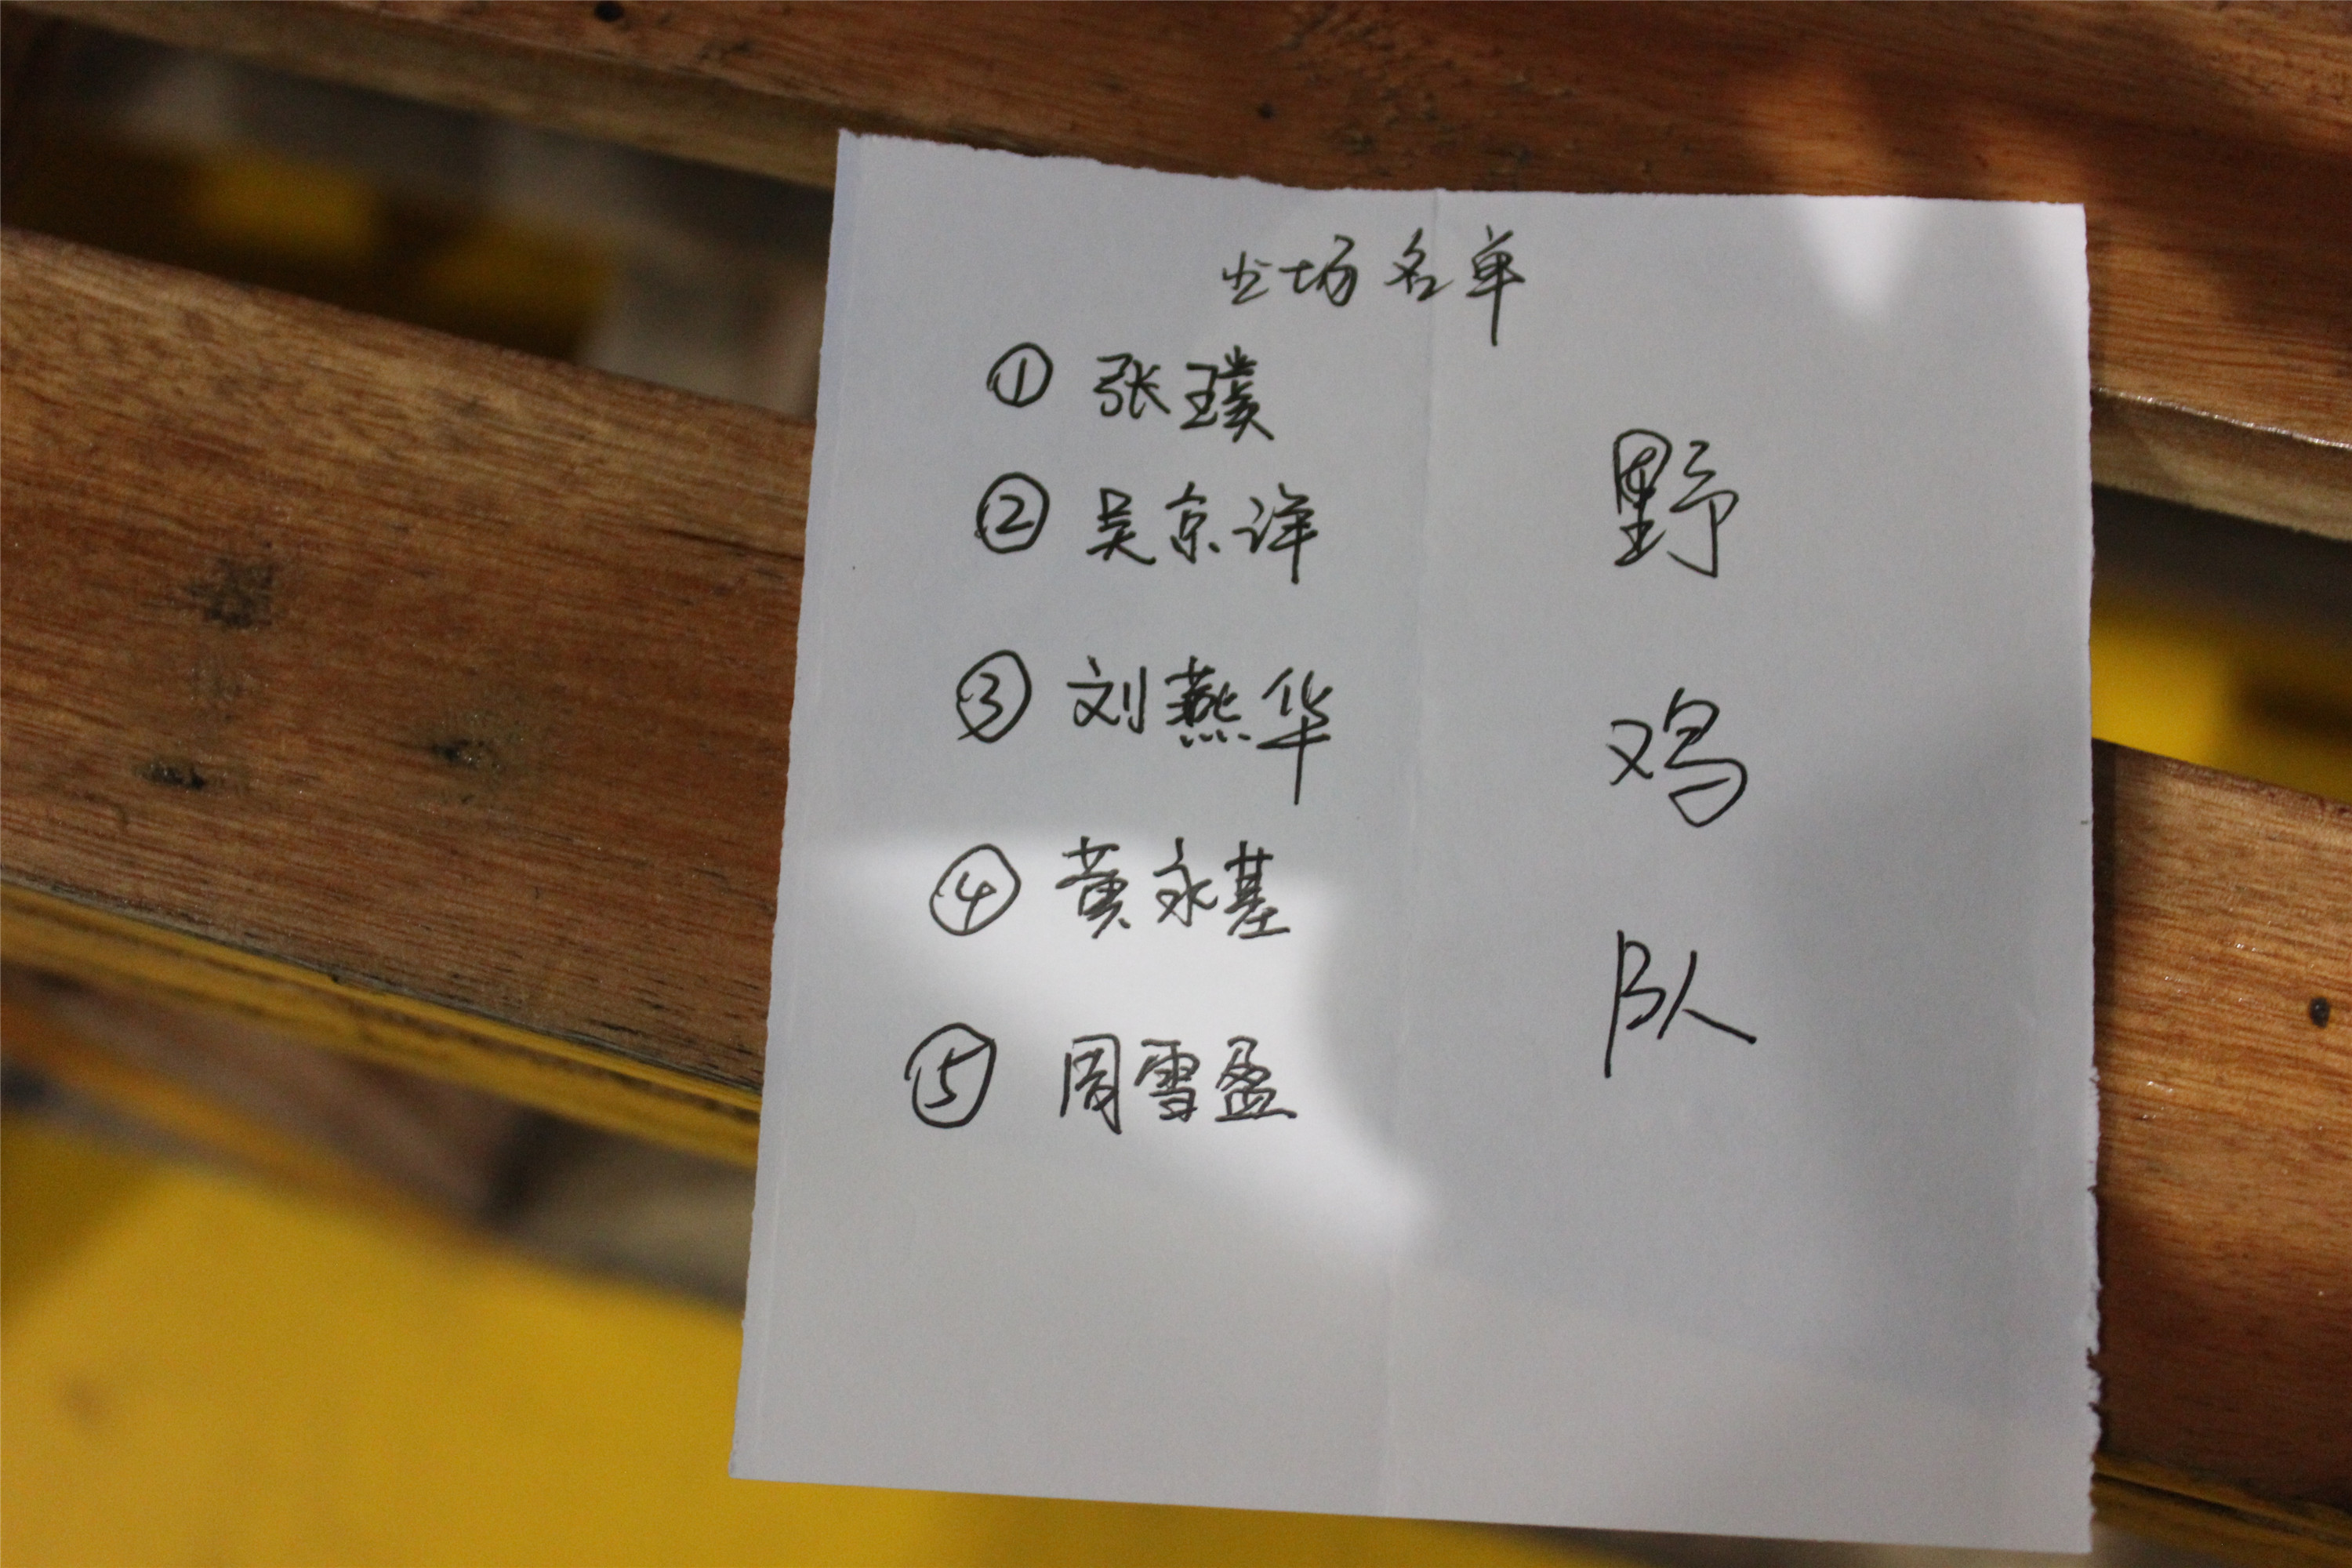 出场名单
① 张璞
② 吴京详
③ 刘燕华
④ 黄永基
⑤ 周雪盈
野
鸡
队